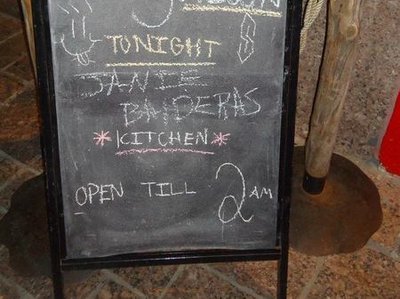 TONIGHT
JANIE
BANDERAS
*KITCHEN*
OPEN TILL 2AM